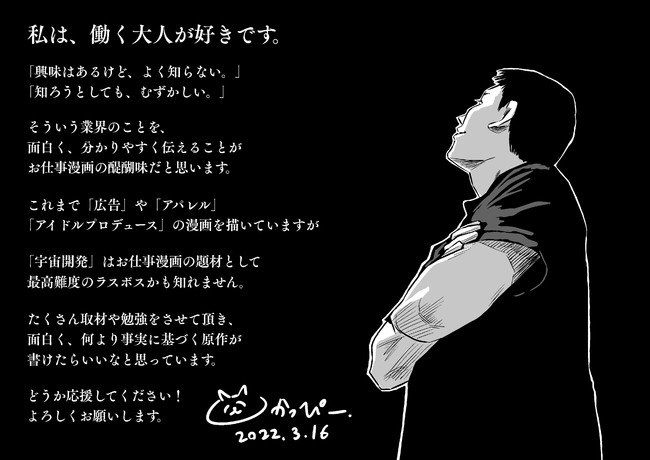 私は、働く大人が好きです。
「興味はあるけど、よく知らない。」
「知ろうとしても、むずかしい。」
そういう業界のことを、
面白く、分かりやすく伝えることが
お仕事漫画の醍醐味だと思います。
これまで「広告」や「アパレル」
「アイドルプロデュース」の漫画を描いていますが
「宇宙開発」はお仕事漫画の題材として
最高難度のラスボスかも知れません。
たくさん取材や勉強をさせて頂き、
面白く、何より事実に基づく原作が
書けたらいいなと思っています。
どうか応援してください！
よろしくお願いします。
かっぴー.
2022.3.16